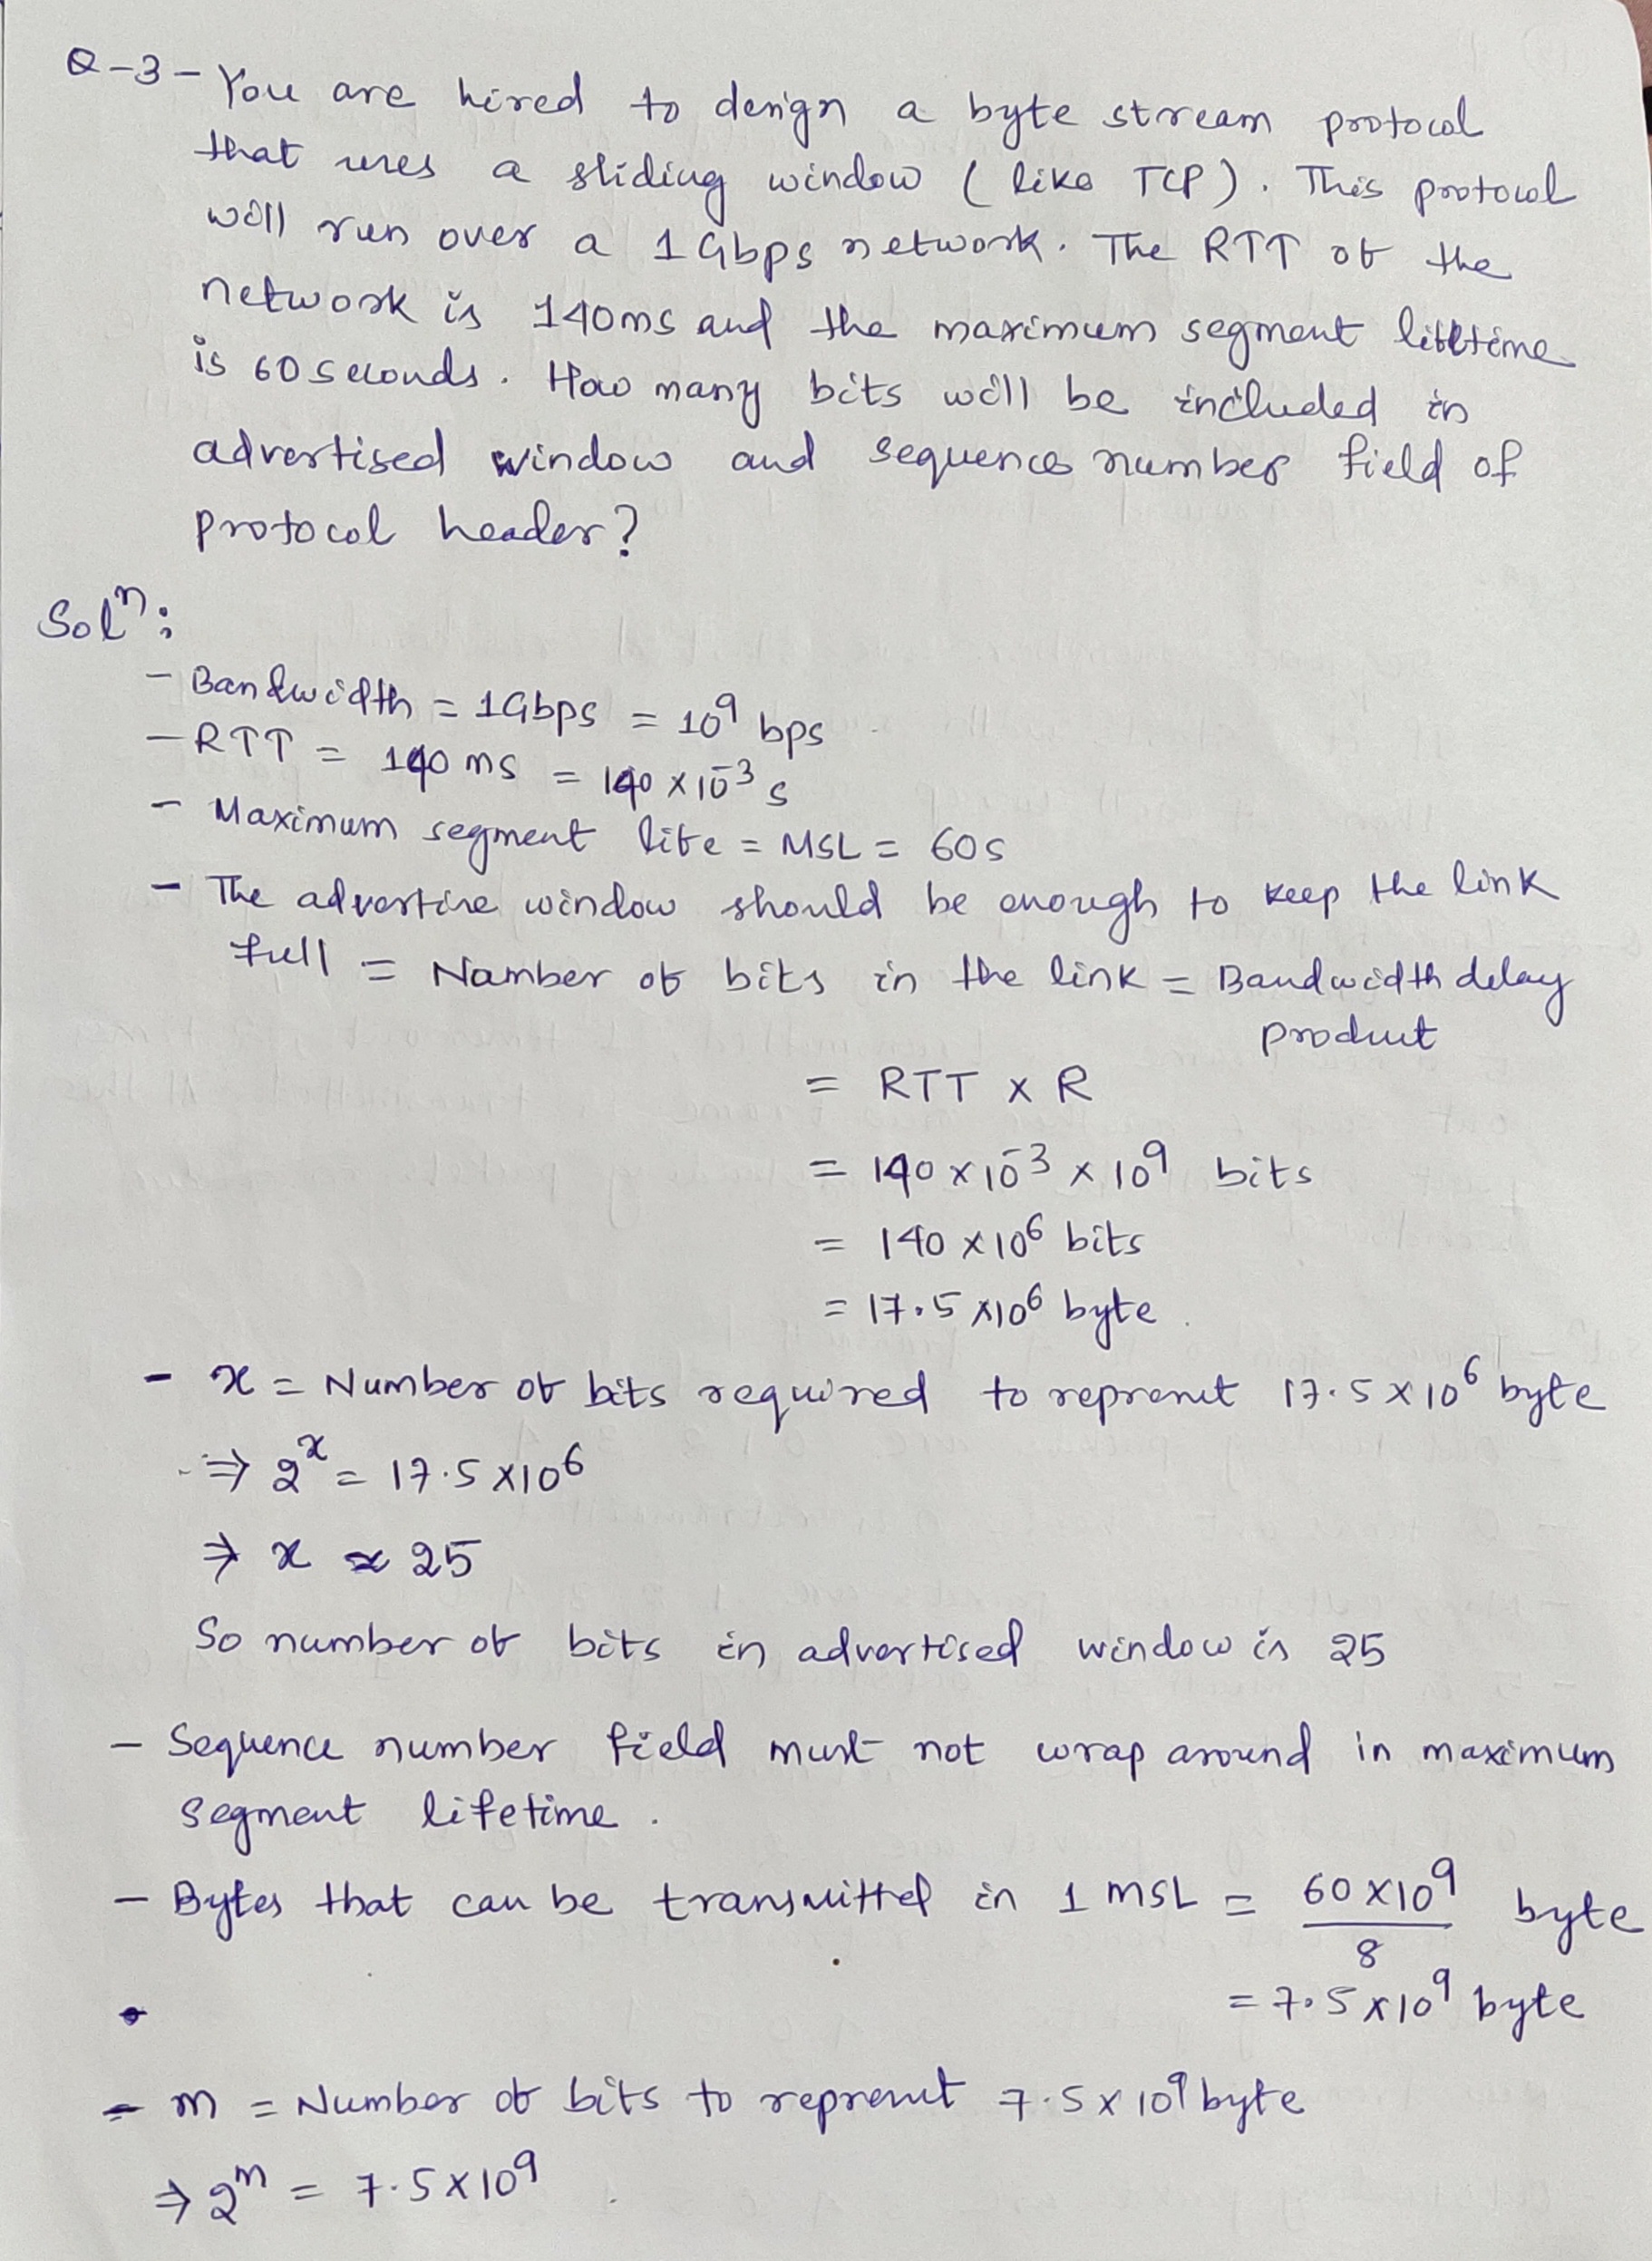 Q-3- You are hired to design a byte stream protocol
that uses a sliding window (like TCP). This protocol
will run over a 1Gbps network. The RTT of the
network is 140ms and the maximum segment lifetime
is 60 seconds. How many bits will be included in
advertised window and sequence number field of
protocol header?
Solⁿ:
- Bandwidth = 1Gbps = 10⁹ bps
- RTT = 140 ms = 140 x 10⁻³ s
- Maximum segment life = MSL = 60s
- The advertise window should be enough to keep the link
full = Number of bits in the link = Bandwidth delay
product
= RTT x R
= 140 x 10⁻³ x 10⁹ bits
= 140 x 10⁶ bits
= 17.5 x 10⁶ byte
- x = Number of bits required to represent 17.5 x 10⁶ byte
⇒ 2ˣ = 17.5 x 10⁶
⇒ x ≈ 25
So number of bits in advertised window is 25
- Sequence number field must not wrap around in maximum
segment lifetime.
- Bytes that can be transmitted in 1 MSL = 60 x 10⁹ / 8 byte
= 7.5 x 10⁹ byte
- m = Number of bits to represent 7.5 x 10⁹ byte
⇒ 2ᵐ = 7.5 x 10⁹